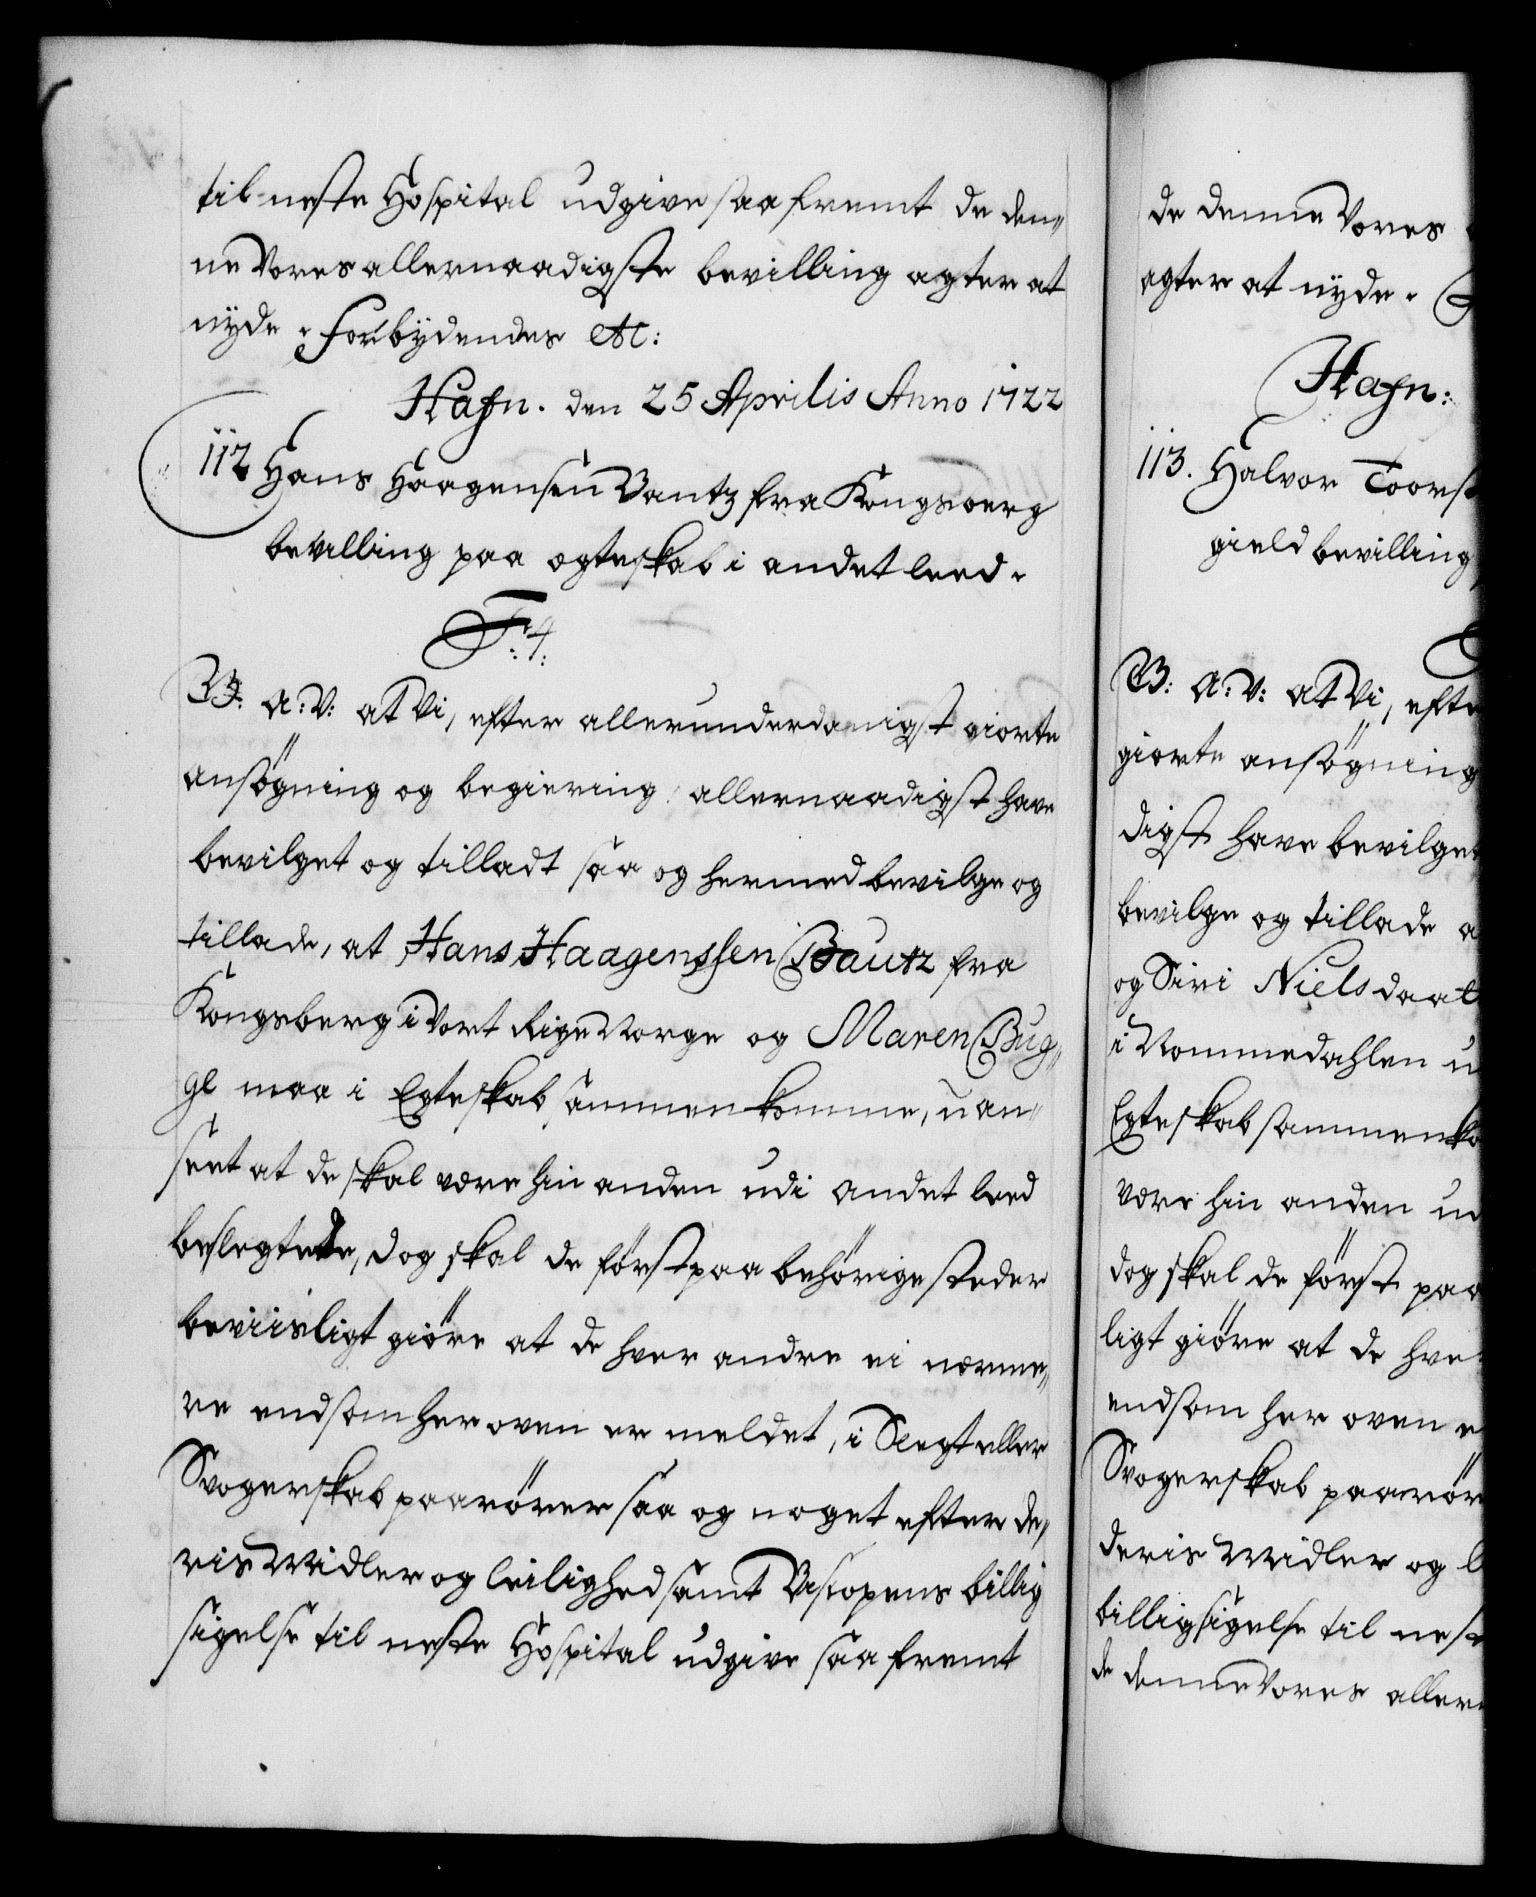 til neste Hospital udgive saa fremt de den„
ne Vores allernaadigste bevilling agter at
nyde. Forbydendes etc:
Hafn. den 25 Aprilis Anno 1722
112 Hans Haagensen Bautz fra Kongsberg
bevilling paa egteskab i andet leed.
F. 4.
V. G. A: V: at Vi, efter allerunderdanigst giorte
ansøgning og begiering, allernaadigst have
bevilget og tilladt saa og hermed bevilge og
tillade, at Hans Haagenssen Bautz fra
Kongsberg i Vort Rige Norge og Maren Bug„
ge maa i Egteskab sammenkomme, uan„
seet at de skal være hin anden udi andet leed
beslegtede, dog skal de først paa behørige steder
beviisligt giøre at de hver andre ei nærme„
re end som her oven er meldet, i Slegt eller
Svogerskab paarører saa og noget efter de„
ris Midler og leilighed samt Biscopens billig
sigelse til neste Hospital udgive saa fremt
de denne Vores
agter at nyde.
Hafn:
113. Halvor Toorst
gield bevilling
A: V: at Vi, efte
giorte ansøgning
digst have bevilget
bevilge og tillade a
og Siri Nielsdaat
i Nommedahlen u
Egteskab sammenko
være hin anden ud
dog skal de først paa
ligt giøre at de hver
endsom her oven e
Svogerskab paarør
deris Midler og l
billigsigelse til nest
de denne Vores aller